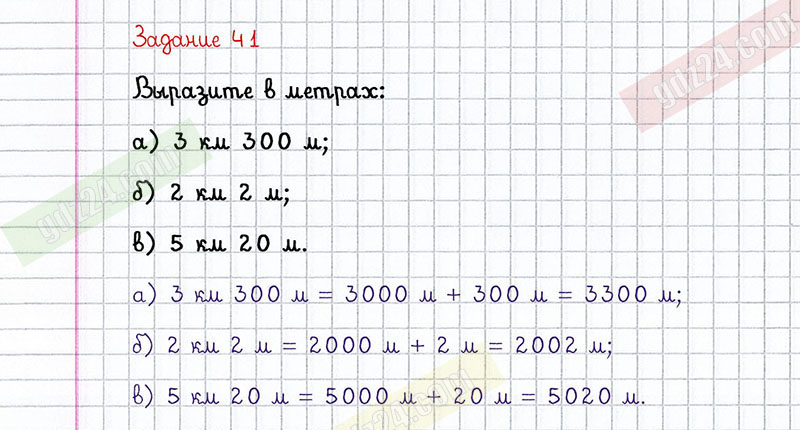 Задание 41
Выразите в метрах:
а) 3 км 300 м;
б) 2 км 2 м;
в) 5 км 20 м.
а) 3 км 300 м = 3000 м + 300 м = 3300 м;
б) 2 км 2 м = 2000 м + 2 м = 2002 м;
в) 5 км 20 м = 5000 м + 20 м = 5020 м.
gdz24.com
gdz24.com
gdz24.com